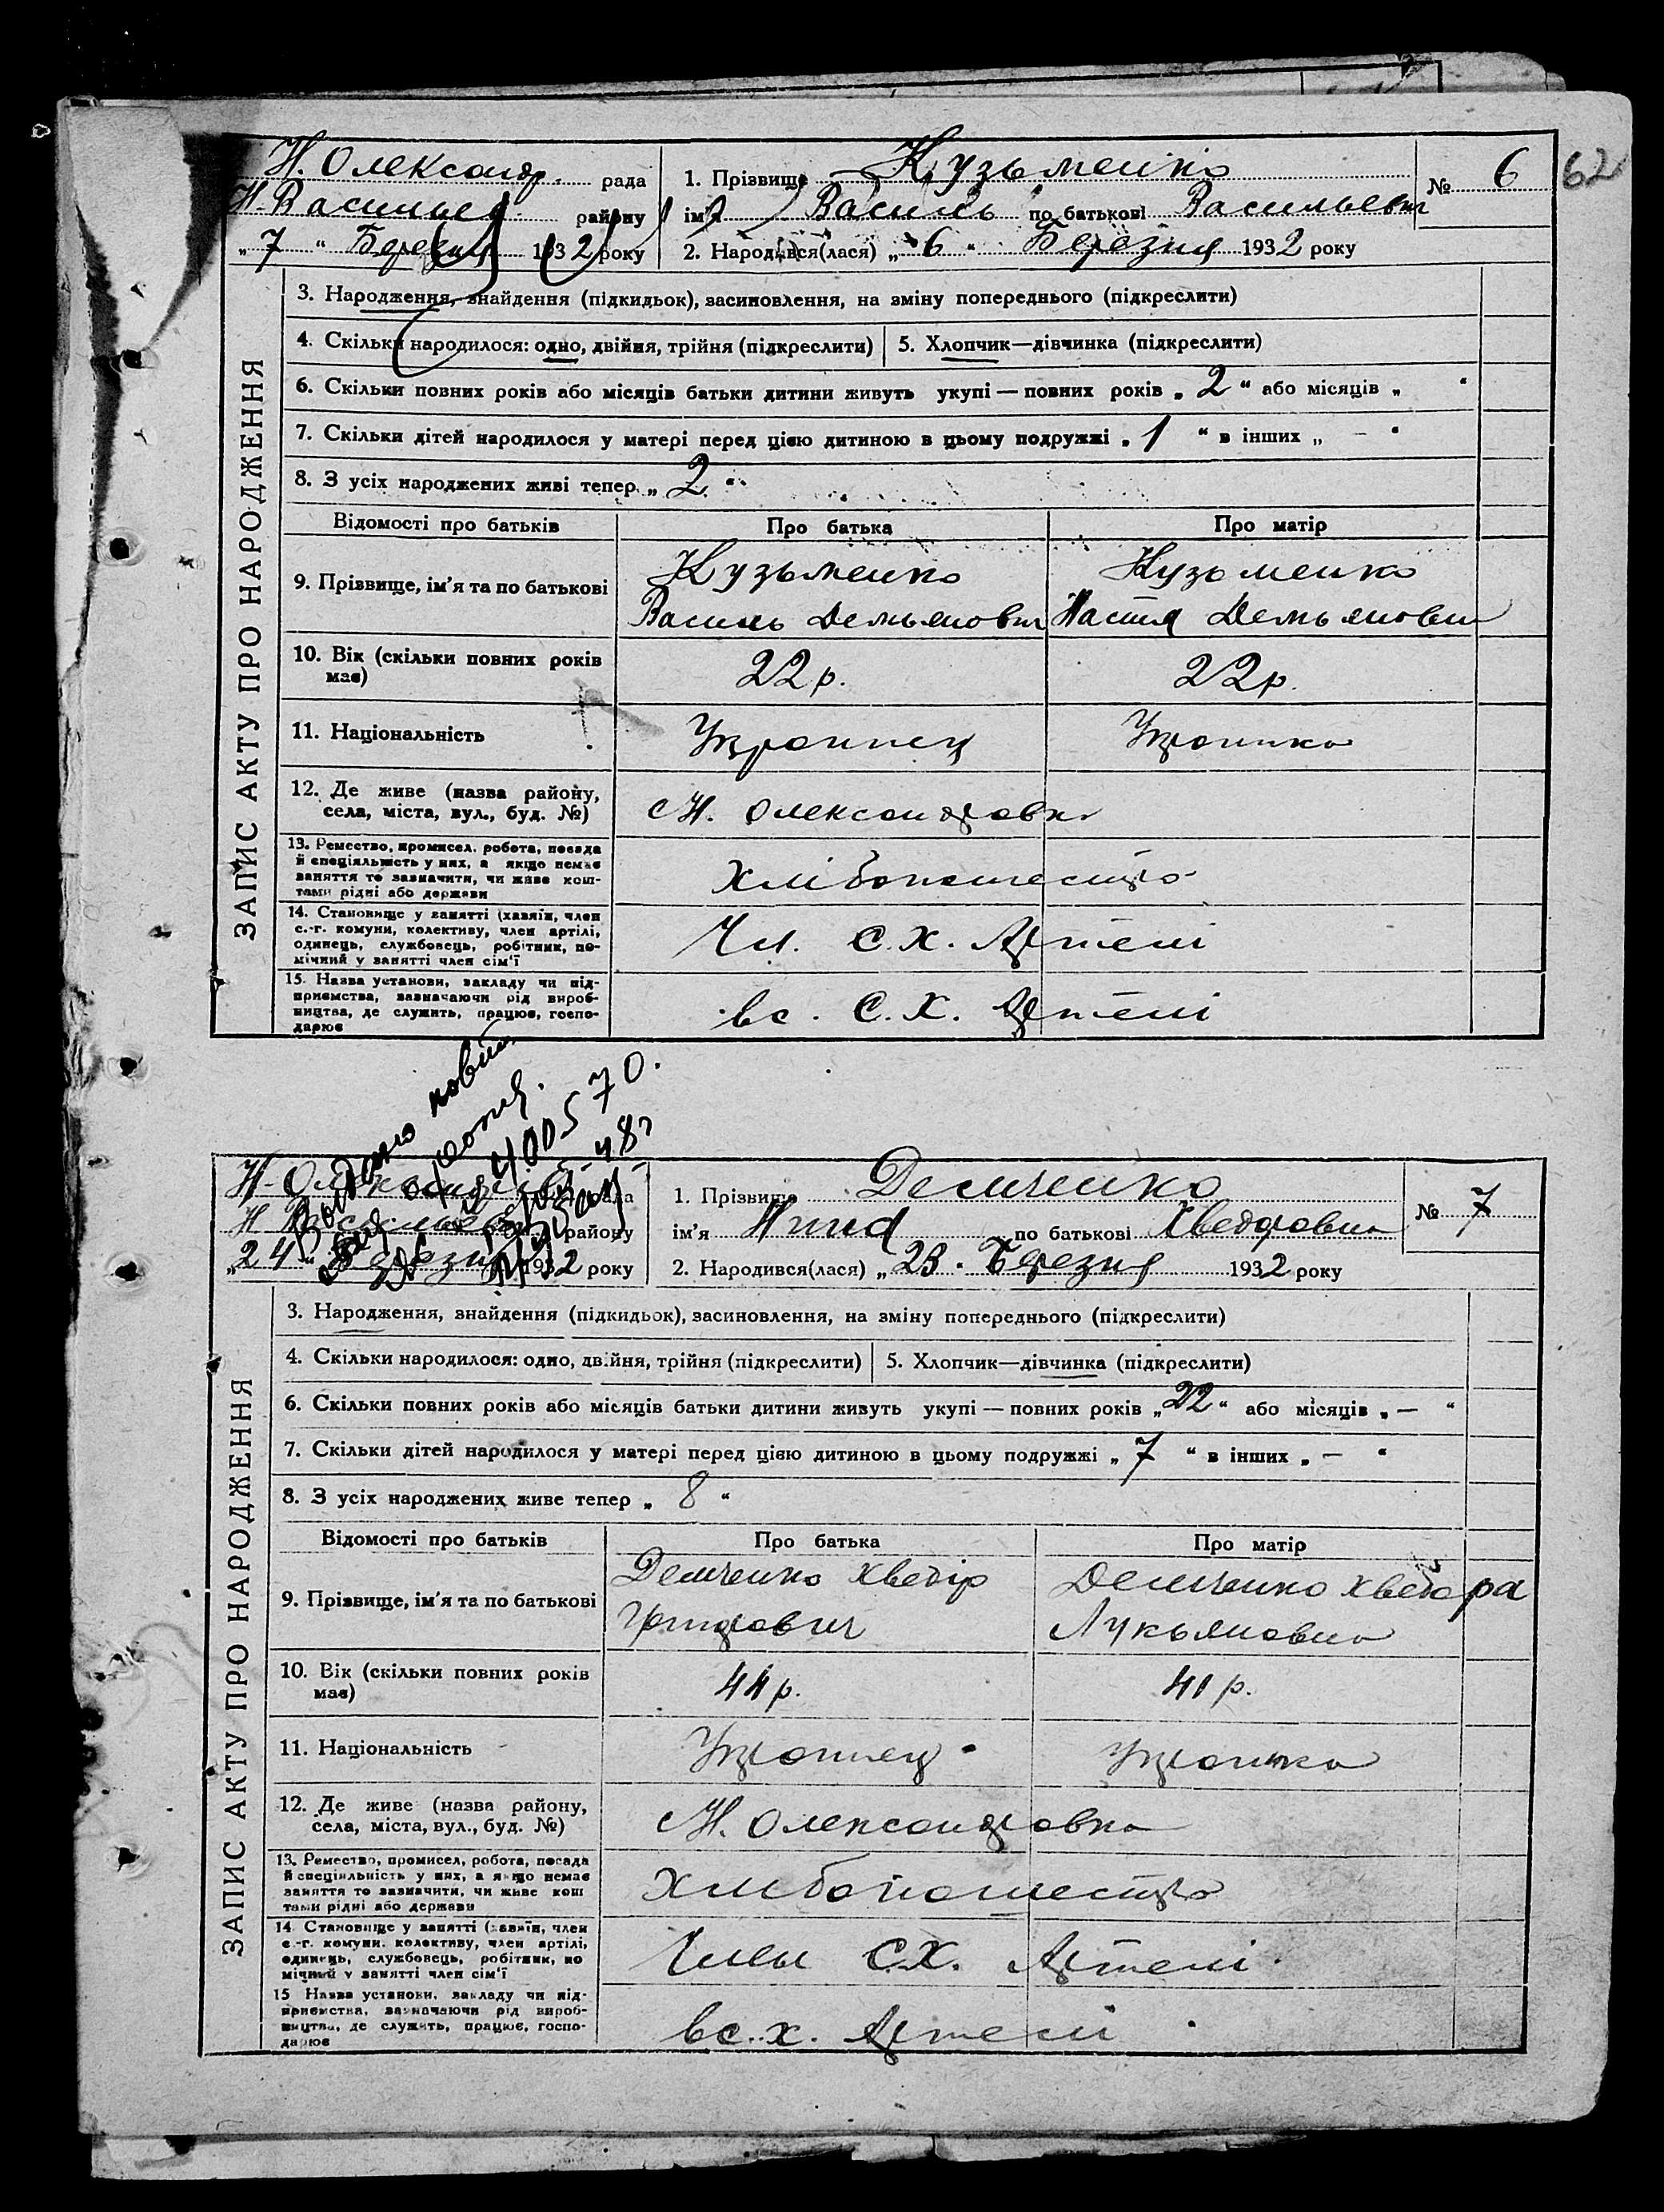 62
Н. Олександр. рада
Н-Васильев. району
„7“ Березня 1932 року
1. Прізвище Кузьменко
ім'я Василь по батькові Васильевич
2. Народився(лася) „6“ Березня 1932 року
№ 6
ЗАПИС АКТУ ПРО НАРОДЖЕННЯ
3. Народження, знайдення (підкидьок), засиновлення, на зміну попереднього (підкреслити)
4. Скільки народилося: одно, двійня, трійня (підкреслити) 5. Хлопчик—дівчинка (підкреслити)
6. Скільки повних років або місяців батьки дитини живуть укупі — повних років „2“ або місяців „ “
7. Скільки дітей народилося у матері перед цією дитиною в цьому подружжі „1“ в інших „—“
8. З усіх народжених живі тепер „2“
Відомості про батьків Про батька Про матір
9. Прізвище, ім'я та по батькові
Кузьменко
Василь Демьянович
Кузьменко
Настя Демьяновна
10. Вік (скільки повних років
має)
22 р. 22 р.
11. Національність Українец Українка
12. Де живе (назва району,
села, міста, вул., буд. №)
с Н. Олександровка
13. Ремество, промисел, робота, посада
й спеціяльність у них, а якщо немає
заняття то зазначити, чи живе кош-
тами рідні або держави
Хлібопашество
14. Становище у занятті (хазяїн, член
с.-г. комуни, колективу, член артілі,
одинець, службовець, робітник, по-
мічний у занятті член сім'ї
Чл. С. Х. Артелі
15. Назва установи, закладу чи під-
приємства, зазначаючи рід вироб-
ництва, де служить, працює, госпо-
дарює
вс. С. Х. Артелі
400570.
Н-Олександрівс рада
Н Васильев району
„24“ Березня 1932 року
1. Прізвище Демченко
ім'я Нина по батькові Хведоровна
2. Народився(лася) „23. Березня 1932 року
№ 7
ЗАПИС АКТУ ПРО НАРОДЖЕННЯ
3. Народження, знайдення (підкидьок), засиновлення, на зміну попереднього (підкреслити)
4. Скільки народилося: одно, двійня, трійня (підкреслити) 5. Хлопчик—дівчинка (підкреслити)
6. Скільки повних років або місяців батьки дитини живуть укупі — повних років „22“ або місяців „—“
7. Скільки дітей народилося у матері перед цією дитиною в цьому подружжі „7“ в інших „—“
8. З усіх народжених живе тепер „8“
Відомості про батьків Про батька Про матір
9. Прізвище, ім'я та по батькові
Демченко Хведір
Демченко Хведора
Лукьяновна
10. Вік (скільки повних років
має)
44 р. 41 р.
11. Національність Українец Українка
12. Де живе (назва району,
села, міста, вул., буд. №)
с Н. Олександровка
13. Ремество, промисел, робота, посада
й спеціяльність у них, а якщо немає
заняття то зазначити, чи живе кош
тами рідні або держави
Хлібопашество
14. Становище у занятті (хазяїн, член
с.-г. комуни, колективу, член артілі,
одинець, службовець, робітник, по
мічний у занятті член сім'ї
Член С.Х. Артелі
15 Назва установи, закладу чи під-
приємства, зазначаючи рід вироб-
ництва, де служить, працює, госпо-
дарює
вс.х. Артелі